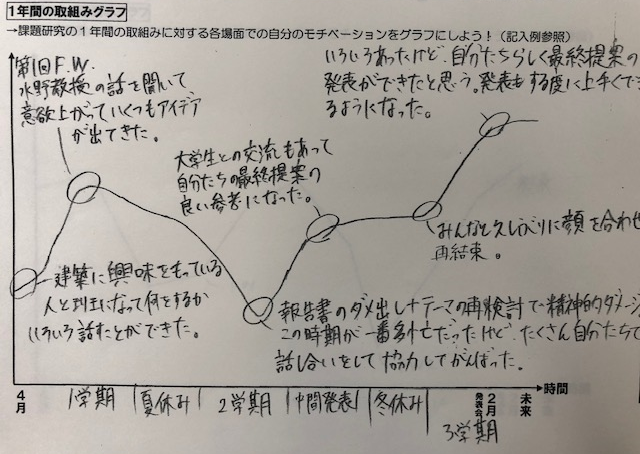 1年間の取組みグラフ
→課題研究の1年間の取組みに対する各場面での自分のモチベーションをグラフにしよう!(記入例参照)
第1回F.W.
水野教授の話を聞いて
意欲上がっていくつもアイデア
が出てきた。
いろいろあったけど、自分たちらしく最終提案の
発表ができたと思う。発表もする度に上手くでき
るようになった。
大学生との交流もあって
自分たちの最終提案の
良い参考になった。
みんなと久しぶりに顔を合わせ
再結束。
建築に興味をもっている
人と班になって何をするか
いろいろ話すことができた。
報告書のダメ出し+テーマの再検討で精神的ダメージ
この時期が一番多忙だったけど、たくさん自分たちで
話し合いをして協力してがんばった。
時間
4月
1学期
夏休み
2学期
中間発表
冬休み
3学期
2月
発表会
未来